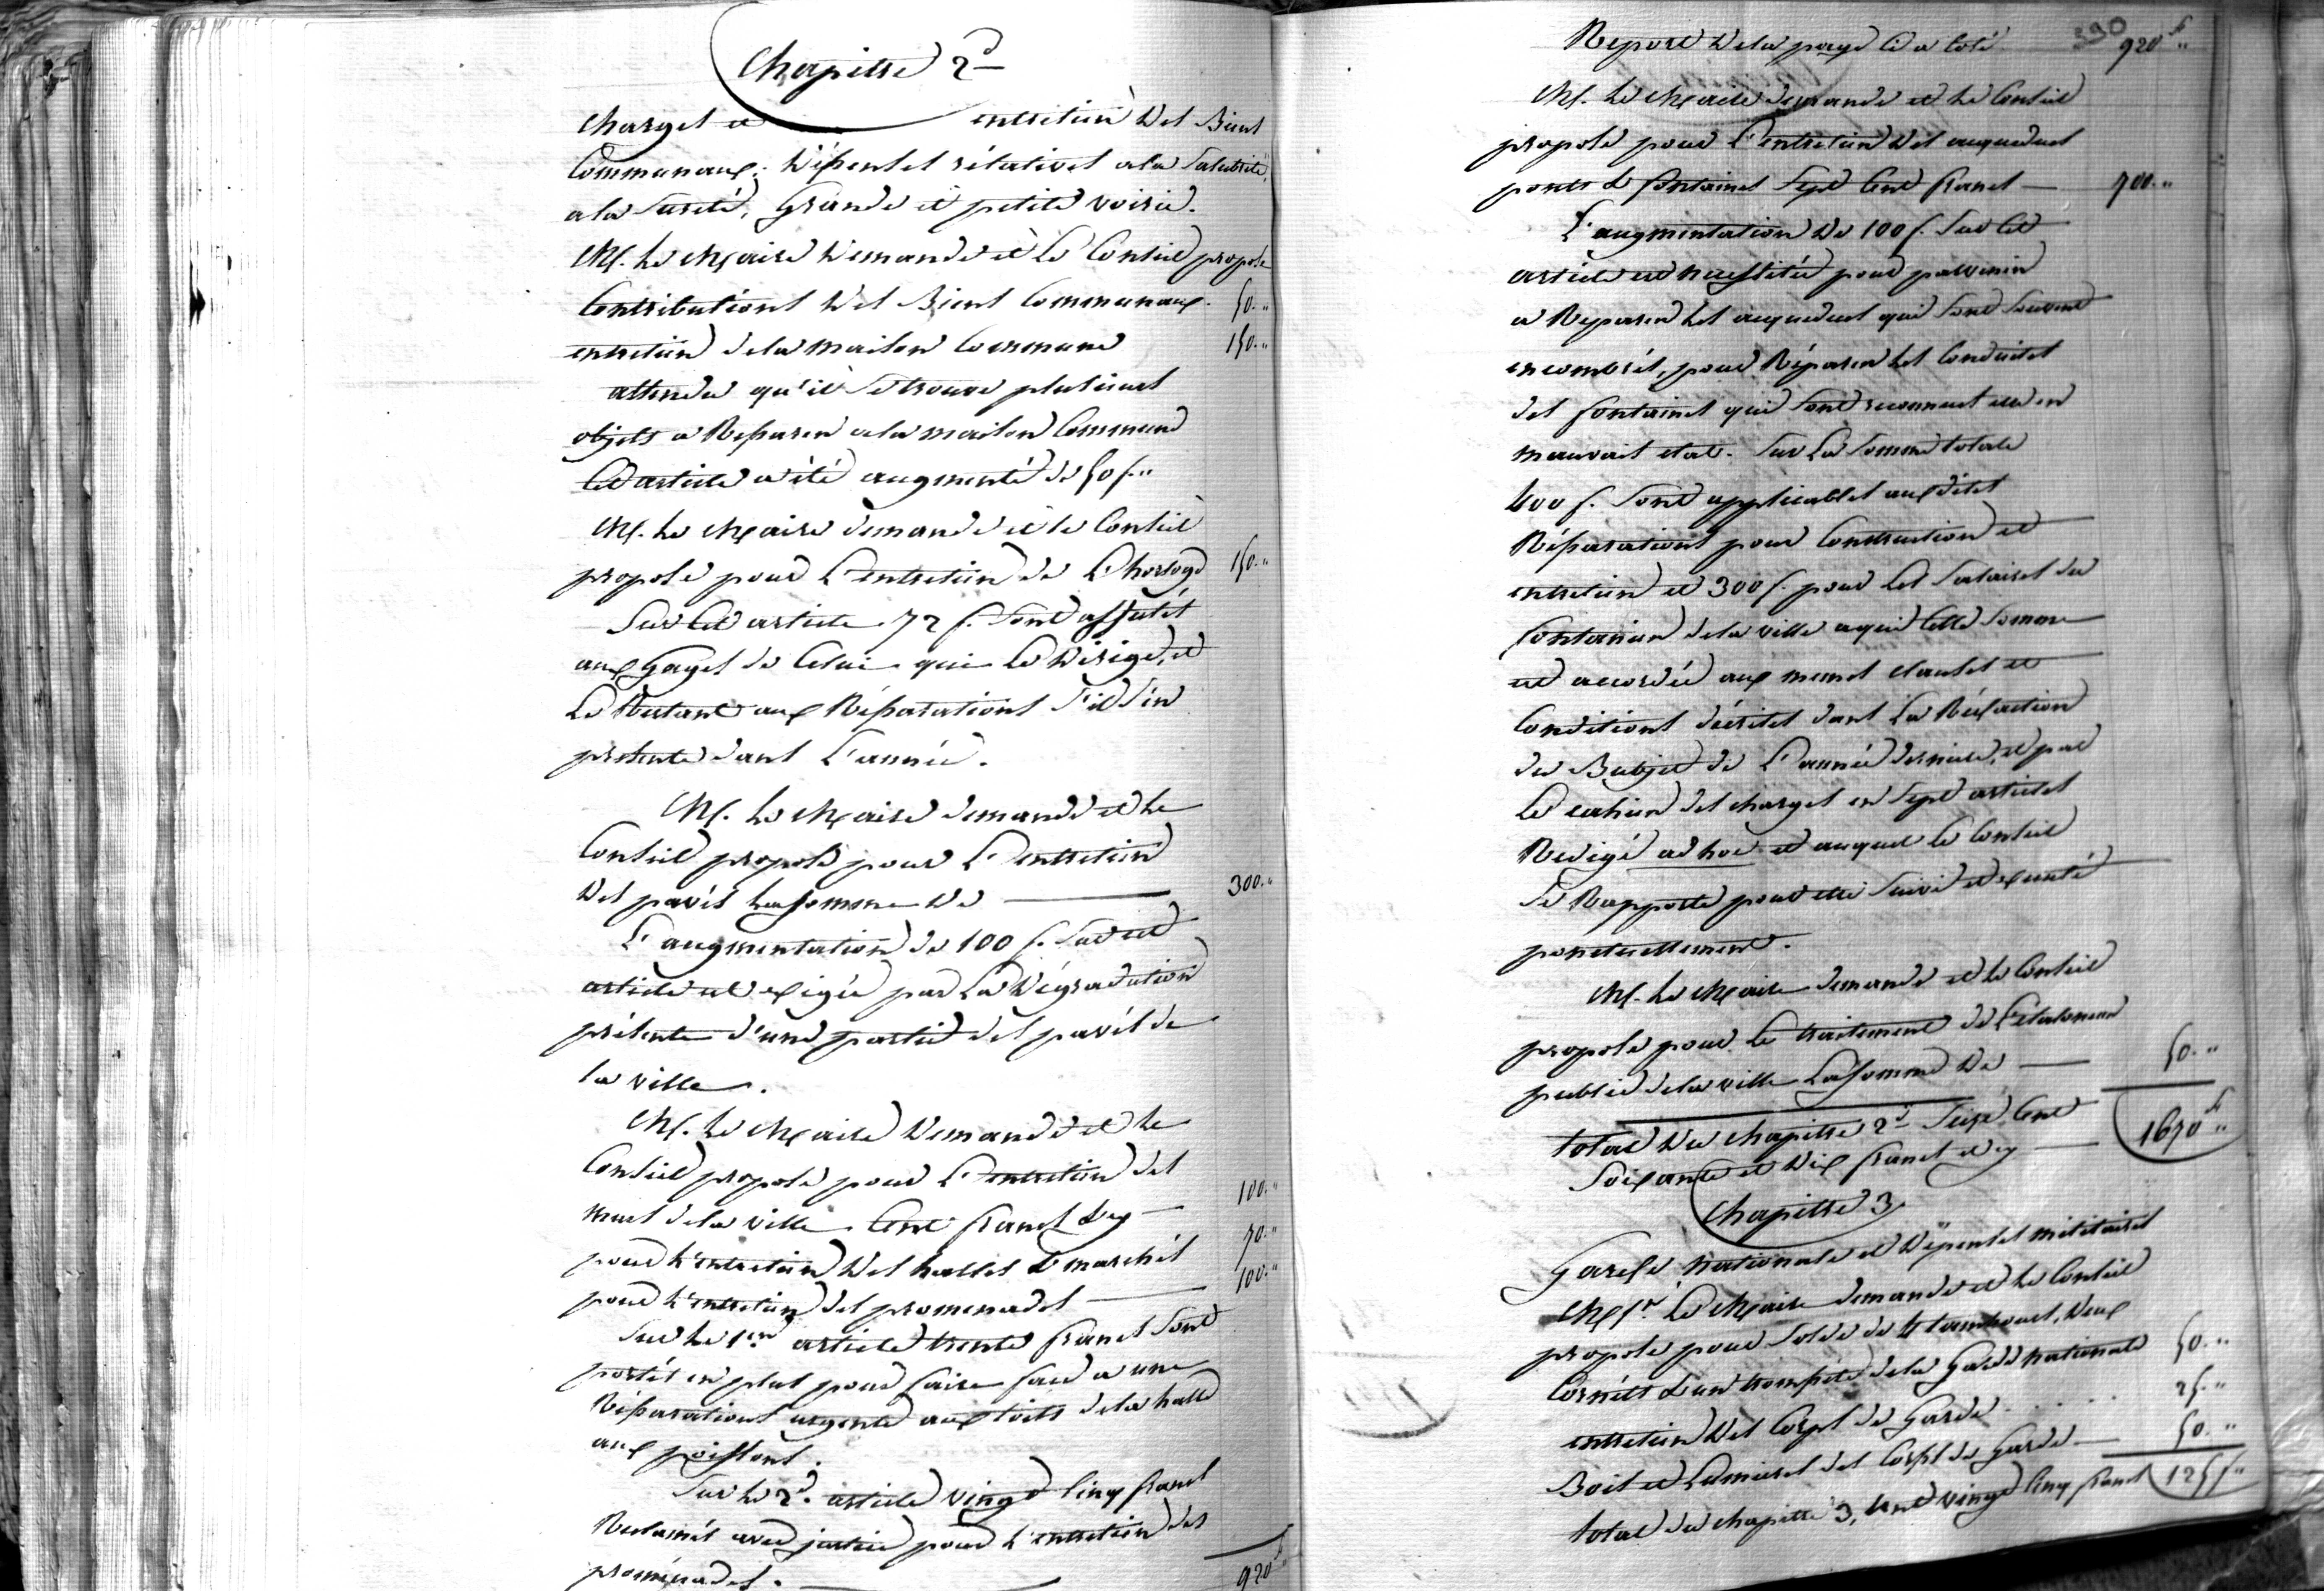 Chapitre 2d
Charges et entretien des Biens
Communaux; dépenses rélatives a la Salubrité,
a la Sureté, Grande et petite voirie.
M. Le Maire demande et Le Conseil propose
Contributions des Biens Communaux. 50.„
entretien de la maison Commune 150.„
attendu qu'il se trouve plusieurs
objets a Reparer a la maison Commune
Cet article a été augmenté de 50 f.„
M. Le Maire demande et le Conseil
propose pour L'entretien de L'horloge 150.„
Sur Cet article 72 f. Sont affectés
aux Gages de Celui qui Le Dirige, et
Le Restant aux Réparations S'il S'en
présente dans L'année.
M. Le Maire demande et Le
Conseil propose pour L'entretien
des pavés La Somme de — 300.„
L'augmentation de 100 f. Sur cet
article est exigée par La Dégradation
présente d'une partie des pavés de
la ville.
M. Le Maire demande et Le
Conseil propose pour L'entretien des
murs de la ville Cent francs Cy — 100.„
pour L'entretien des halles & marchés 70.„
pour L'entretien des promenades — 100.„
Sur Le 1er article trente francs Sont
portés en plus pour faire face a une
Réparations urgente aux toits de la halle
aux poissons.
Sur Le 2d. article vingt Cinq francs
Reclamés avec justice pour L'entretien des
promenades. — 920 f
390
Report de la page Ci a Coté 920 f „
M. Le Maire demande et Le Conseil
propose pour L'entretien des aqueducs
ponts & fontaines Sept Cent francs — 700.„
L'augmentation de 100 f. Sur Cet
article est nécessitée pour parvenir
a Reparer Les aqueducs qui Sont Souvent
encombrés, pour Réparer Les Conduites
des fontaines qui Sont reconnues etre en
mauvais etat. Sur La Somme totale
400 f. Sont applicables auxdites
Réparations pour Construction et
entretien et 300 f. pour Les Salaires du
fontainier de la ville a qui Cette Somme
est accordée aux memes clauses et
Conditions décrites dans La Rédaction
du Budjet de L'année derniere, et par
Le cahier des charges en Sept articles
Redigé ad hoc et auquel le Conseil
Se Rapporte pour etre Suivi et exécuté
ponctuellement.
M. Le Maire demande et le Conseil
propose pour Le traitement de L'étalonneur
public de la ville La Somme de — 50.„
total du chapitre 2d Seize Cent
Soixante et Dix francs Cy — 1670 f „
Chapitre 3
Garde nationale et Dépenses militaires
Mr. Le Maire demande et Le Conseil
propose pour Solde de 4 tambours, Deux
Cornets & un trompete de la Garde nationale 50.„
entretien des Corps de Garde . . . . 25.„
Bois et Lumieres des Corps de Garde — 50.„
total du chapitre 3, Cent vingt Cinq francs 125 f „